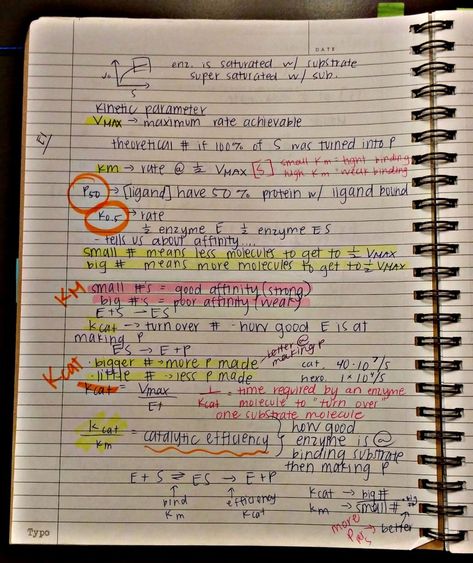 DATE
enz. is saturated w/ substrate
super saturated w/ sub.
S
Kinetic parameter
VMAX → maximum rate achievable
theoretical # if 100% of S was turned into P
km → rate @ ½ VMAX [S] small km = tight binding
high km = weak binding
P50 → [ligand] have 50% protein w/ ligand bound
K0.5 → rate
½ enzyme E ½ enzyme ES
- tells us about affinity....
small # means less molecules to get to ½ VMAX
big # means more molecules to get to ½ VMAX
KM
small #'s = good affinity (strong)
big #'s = poor affinity (weak)
E+S → ES
kcat → turn over # - how good E is at
making P
ES → E+P
better @ making P
Kcat
· bigger # → more P made
cat 40·10⁷/s
· little # → less P made
hexo 1×10⁴/s
kcat = Vmax / Et
1/kcat = time required by an enzyme
molecule to "turn over"
one substrate molecule
kcat / km = catalytic efficiency } how good
enzyme is @
binding substrate
then making P
E + S ⇌ ES → E+P
bind
km
efficiency
kcat
kcat → big #
km → small #
more
→ better
Typo